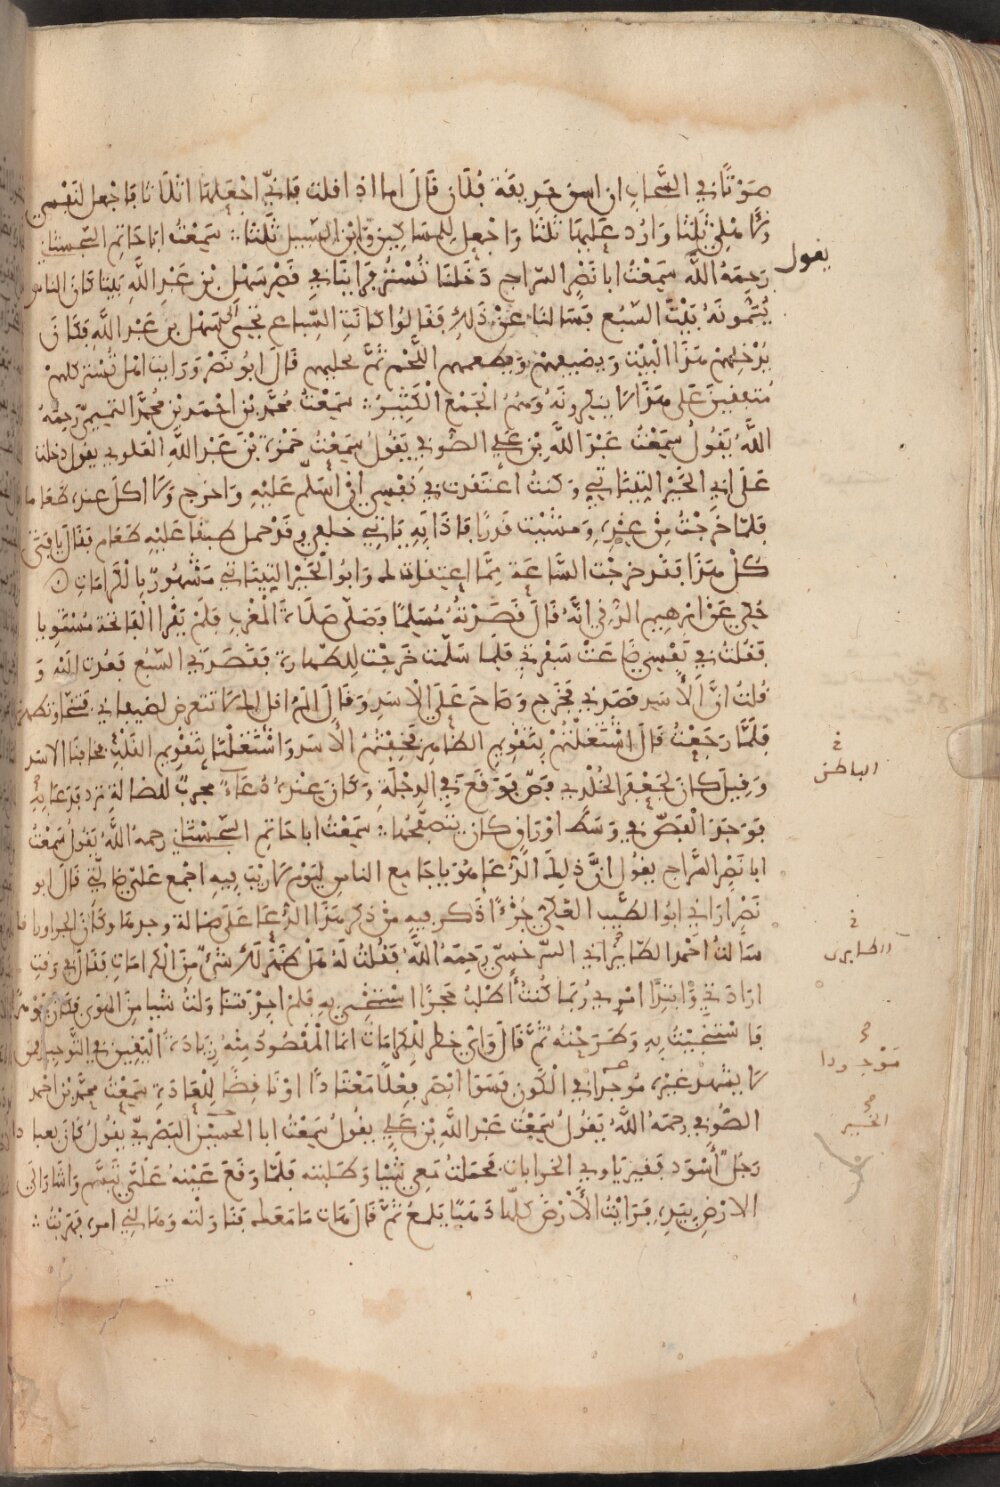 صَوْتًا في السَّحاب ان اسق حديقة فُلان قَالَ اما اذ قلت فاِنّي اجْعَلها اثْلَاثا فاجْعل لنَفْسي
وَأهْلي ثُلُثا وَارُد عَلَيها ثُلُثا وَاجْعل لِلمسَاكين وَابْن السَّبيل ثُلثا سَمِعْتُ ابا حَاتم السِّجستاني
يقول
رَحِمَهُ اللَّه سَمِعْتُ ابا نَصْر السرّاج دَخَلنَا تُسْتر فراينا في قَصْر سَهْل بْن عَبْد اللَّه بَيتا كان الناس
يُسَمُّونَهُ بَيْتَ السّبُع فسَالنا عَنْ ذَلِك فقَالُوا كانَتِ السِّباع تجيْ الى سَهْل بن عَبْد اللَّه فكَانَ
يُدْخِلهنْ هَذَا الْبَيْت وَيضيفهنْ ويطعمهن اللَّحْم ثُمَّ يخليهن قَالَ ابُو نَصْر وَرَايت اهْل تُسْتر كلهمْ
مُتفقينَ عَلى هَذَا لا ينكرونَهُ وَهمُ الجَمْعُ الْكَثِيرُ سَمِعْتُ مُحمَّد بن احْمَد بْن مُحمَّد التميميّ رحِمَهُ
اللَّهُ يَقُولُ سَمِعْتُ عَبْدَ اللَّه بْن عَلي الصُّوفي يَقُولُ سَمِعْتُ حَمْزَة بْن عَبْد اللَّه الْعَلوي يقول دخلت
عَلَى ابي الخَيْر التِينَاتي وَكنتُ اعْتَقدت في نَفْسي انْ اسَلّم عَلَيْهِ وَاخرج وَلا اكل عنده طعَاما
فلمّا خَرجْتُ مِنْ عِنْدِه وَمشَيْت قدرًا فاذَا بِهِ خلفي وقَدْ حمل طبقا عَلَيْه طعَام فقَالَ يا فتَى
كُلْ هَذَا فقَد خرجْت السَّاعَة مِمَّا اعتقدت لهُ وَابُو الْخَيْر التِينَاتي مَشْهُورٌ بالْكَرَامَات
حُكي عَنْ ابْرهيم الرقي انَّهُ قَالَ قَصَدْتهُ مُسَلّمًا فصَلّى صَلَاة الْمَغْرب فلَمْ يَقْرا الفَاتحة مُسْتَويا
فقُلتُ في نَفْسي ضَاعَتْ سَفْرتي فَلَما سَلَّمت خَرجْت لِلطهارة فقَصَدني السّبُع فعُدت اليْه وَ
قُلتُ انَّ الْأَسَد قصَدني فخَرج وَصَاحَ عَلَى الْاسَد وَقالَ الَمْ اقل لك لا تتعرض لضيفاني فتنحّى وتطهرت
فلَمَّا رَجَعْتُ قَالَ اشْتَغلْتُمْ بتَقْويم الظاهر فخِفْتُمُ الْأسَد وَاشْتَغلْنا بتَقْويم القلْب فخافنا الاسَد
في الباطن
وَقيلَ كانَ لجَعْفر الخُلْدي فصّ فوَقعَ في الدجْلَة وَكانَ عِنْدَهُ دُعَاءٌ مجربٌ للضالة ترد فدَعَا بِهِ
فوَجَدَ الفَصّ في وَسَط اوْرَاق كان يتصَفّحهَا سَمِعْتُ ابا حَاتم السِّجسْتاني رحمهُ اللَّه يَقُولُ سَمعْتُ
ابا نَصْر السَّراج يقُول انَّ ذلِكَ الدُّعَا هوَ يا جَامع الناس ليَوْم لا رَيْبَ فِيهِ اجْمع عَلَيّ ضَالّتي قَالَ ابو
نَصْر ارَاني ابُو الطَّيب العَكّيّ جُزْءًا ذَكر فيهِ مَنْ ذكر هَذَا الدّعَا عَلَى ضَالة وجدها وكَانَ الجزاوراقا
سَالتُ احْمد الطّابرَاني السّرخسِيّ رَحِمَهُ اللَّهُ فقُلتُ لَهُ هَلْ ظهَرَ لَكَ شَيْءٌ مِنَ الْكرَامَات فقَالَ في وَقت
في الطابرى
ارَادَتي وَابْتِدَا امْري رُبمَا كُنْتُ أطْلبُ حَجَرًا اسْتنْجي بهِ فلمْ اجدْ فتنَاوَلتُ شَيْا مِنَ الهوَى فكَانَ جَوْهرًا
فاسْتَنجَيْتُ بِهِ وَطرَحْتُهُ ثُمَّ قَالَ وَايّ خطر لِلْكرَامَات انما الْمَقْصُودُ مِنْهُ زيَادَة الْيَقِين في التَّوحيد فمن
لا يشْهدْ غيرَه مُوجدًا في الْكَون فسَوَا ابْصَرَ فِعْلًا مُعْتَادًا اوْ نَاقِضًا لِلْعَادَة سَمعْتُ مُحمَّد بن احْمد
خ موجودا
الصُّوفي رحمَهُ اللَّهُ يَقُولُ سَمعْتُ عَبْدَ اللَّه بْن عَلي يقُولُ سَمِعْتُ ابا الحسَيْن البَصْريّ يقُولُ كانَ بعبادان
خ الخسير
رَجُلٌ أسْوَد فقير يَاوي الخرابات فحَمَلتُ مَعي شَيْا وَطلَبته فلمّا وَقعَ عَيْنهُ عَلَيّ تبَسَّم وَاشارَ الَى
الارْض بيَدِه فرَايْتُ الْأرْضَ كلّها ذَهَبًا يَلمعُ ثمَّ قَالَ هَات مَا مَعَكَ فنَاوَلته وَهَالني امره فهَرَبْتُ